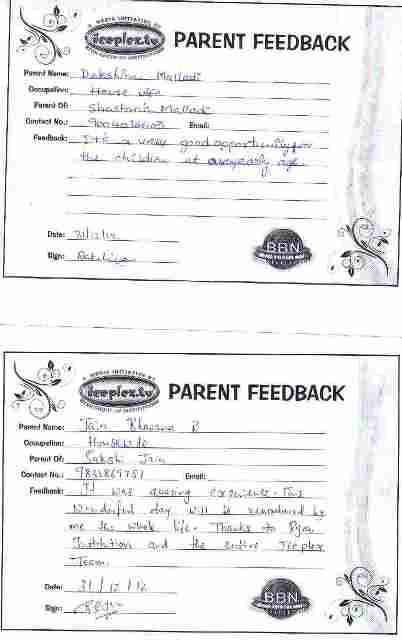 A MEDIA INITIATIVE BY
iceplex.tv
PARENT FEEDBACK
Parent Name: Dakshina Malladi
Occupation: House wife
Parent Of: Malladi
Contact No.: Email:
Feedback: It's a very good opportunity for
the children at early age
Date:
Sign:
BBN
A MEDIA INITIATIVE BY
iceplex.tv
PARENT FEEDBACK
Parent Name: Jain Bhavana R
Occupation: Housewife
Parent Of: Sakshi Jain
Contact No.: 9833869751 Email:
Feedback: It was amazing experience. This
Wonderful day will be remembered by
me the whole life. Thanks to
Institution and the entire Iceplex
Team.
Date: 21/12/16
Sign:
BBN